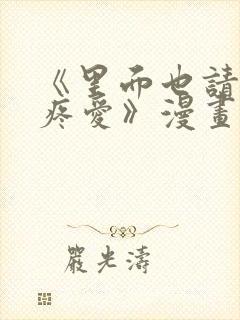 《里而也請
疼愛》漫畫
嚴光濤